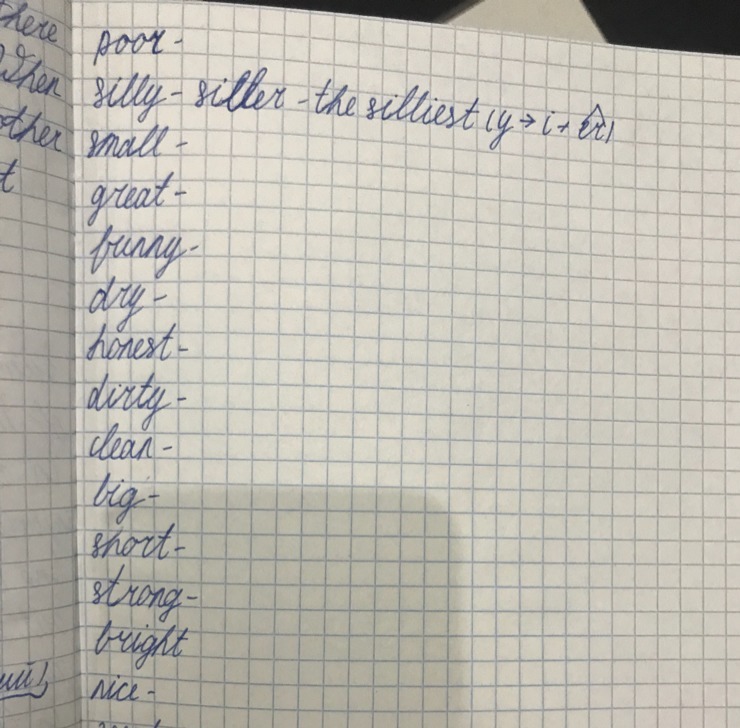 there
When
other
t
poor -
silly - siller - the silliest (y → i + er)
small -
great -
funny -
dry -
honest -
dirty -
clean -
big -
short -
strong -
bright
nice -